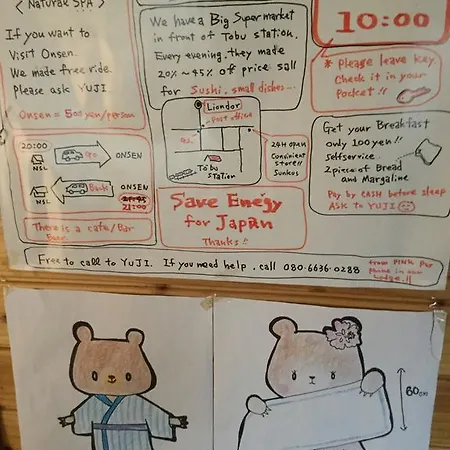 < Natural SPA >
If you want to
Visit Onsen.
We made free ride.
Please ask YUJI.
Onsen = 500 yen/person
We have a Big Super market
in front of Tobu station.
Every evening, they made
20% ~ 45% off price sall
for Sushi, small dishes...
10:00
* Please leave key.
Check it in your
pocket!!
Liondor
post office
TOBU
Station
24H open
Convinient
store!!
Sunkus
Get your Breakfast
only 100 yen!!
Selfservice.
2piece of Bread
and Margaline
Pay by CASH before sleep
ASK to YUJI
20:00
NSL
go
ONSEN
NSL
Back
ONSEN
21:00
There is a cafe/Bar
Save Enegy
for Japan
Thanks!!
Free to call to YUJI. If you need help, call 080-6636-0288
from PINK
60cm